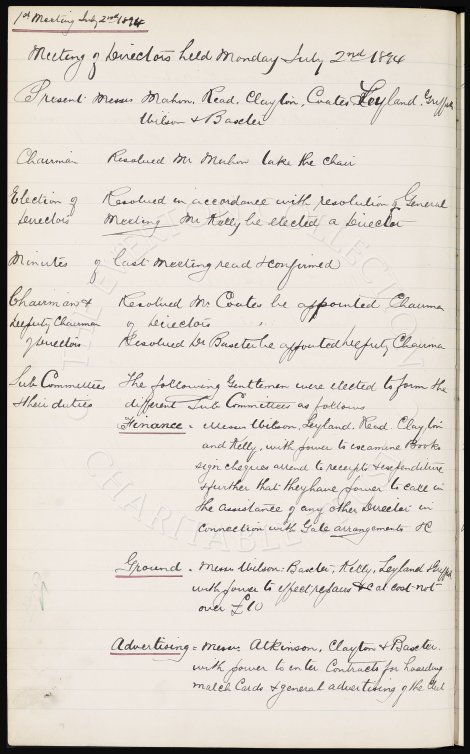 1st Meeting July 2nd 1894
Meeting of Directors held Monday July 2nd 1894
Present Messrs Mahon, Read, Clayton, Coates, Leyland, Griffiths
Wilson & Baxter
Chairman Resolved Mr Mahon take the chair
Election of Resolved in accordance with resolution of General
Directors Meeting Mr Kelly be elected a Director
Minutes of last Meeting read & confirmed
Chairman & Resolved Mr Coates be appointed Chairman
Deputy Chairman of Directors
of Directors Resolved Dr Baxter be appointed Deputy Chairman
Sub Committees The following Gentlemen were elected to form the
& their duties different Sub Committees as follows
Finance = Messrs Wilson, Leyland, Read, Clayton
and Kelly, with power to examine Books
sign cheques attend to receipts & expenditure
& further that they have power to call in
the assistance of any other Director in
connection with Gate arrangements &c
Ground = Messrs Wilson, Baxter, Kelly, Leyland & Griffiths
with power to effect repairs &c at cost not
over £10
Advertising = Messrs Atkinson, Clayton & Baxter
with power to enter Contracts for hoarding
match Cards & general advertising of the Club
THE EVERTON COLLECTION
CHARITABLE